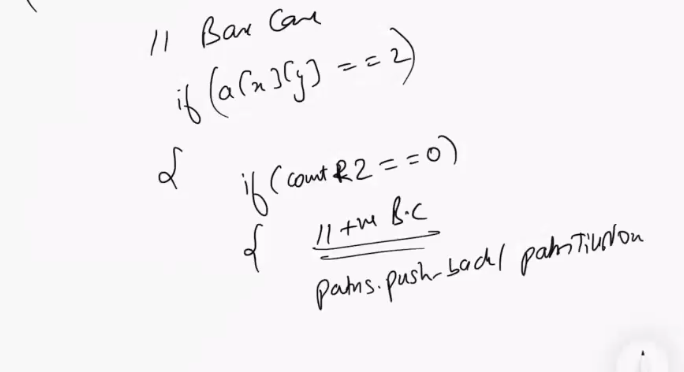 // Base Case
if (a[x][y] == 2)
{ if (count R2 == 0)
{ // +ve B.C
paths.push_back( pathTillNow